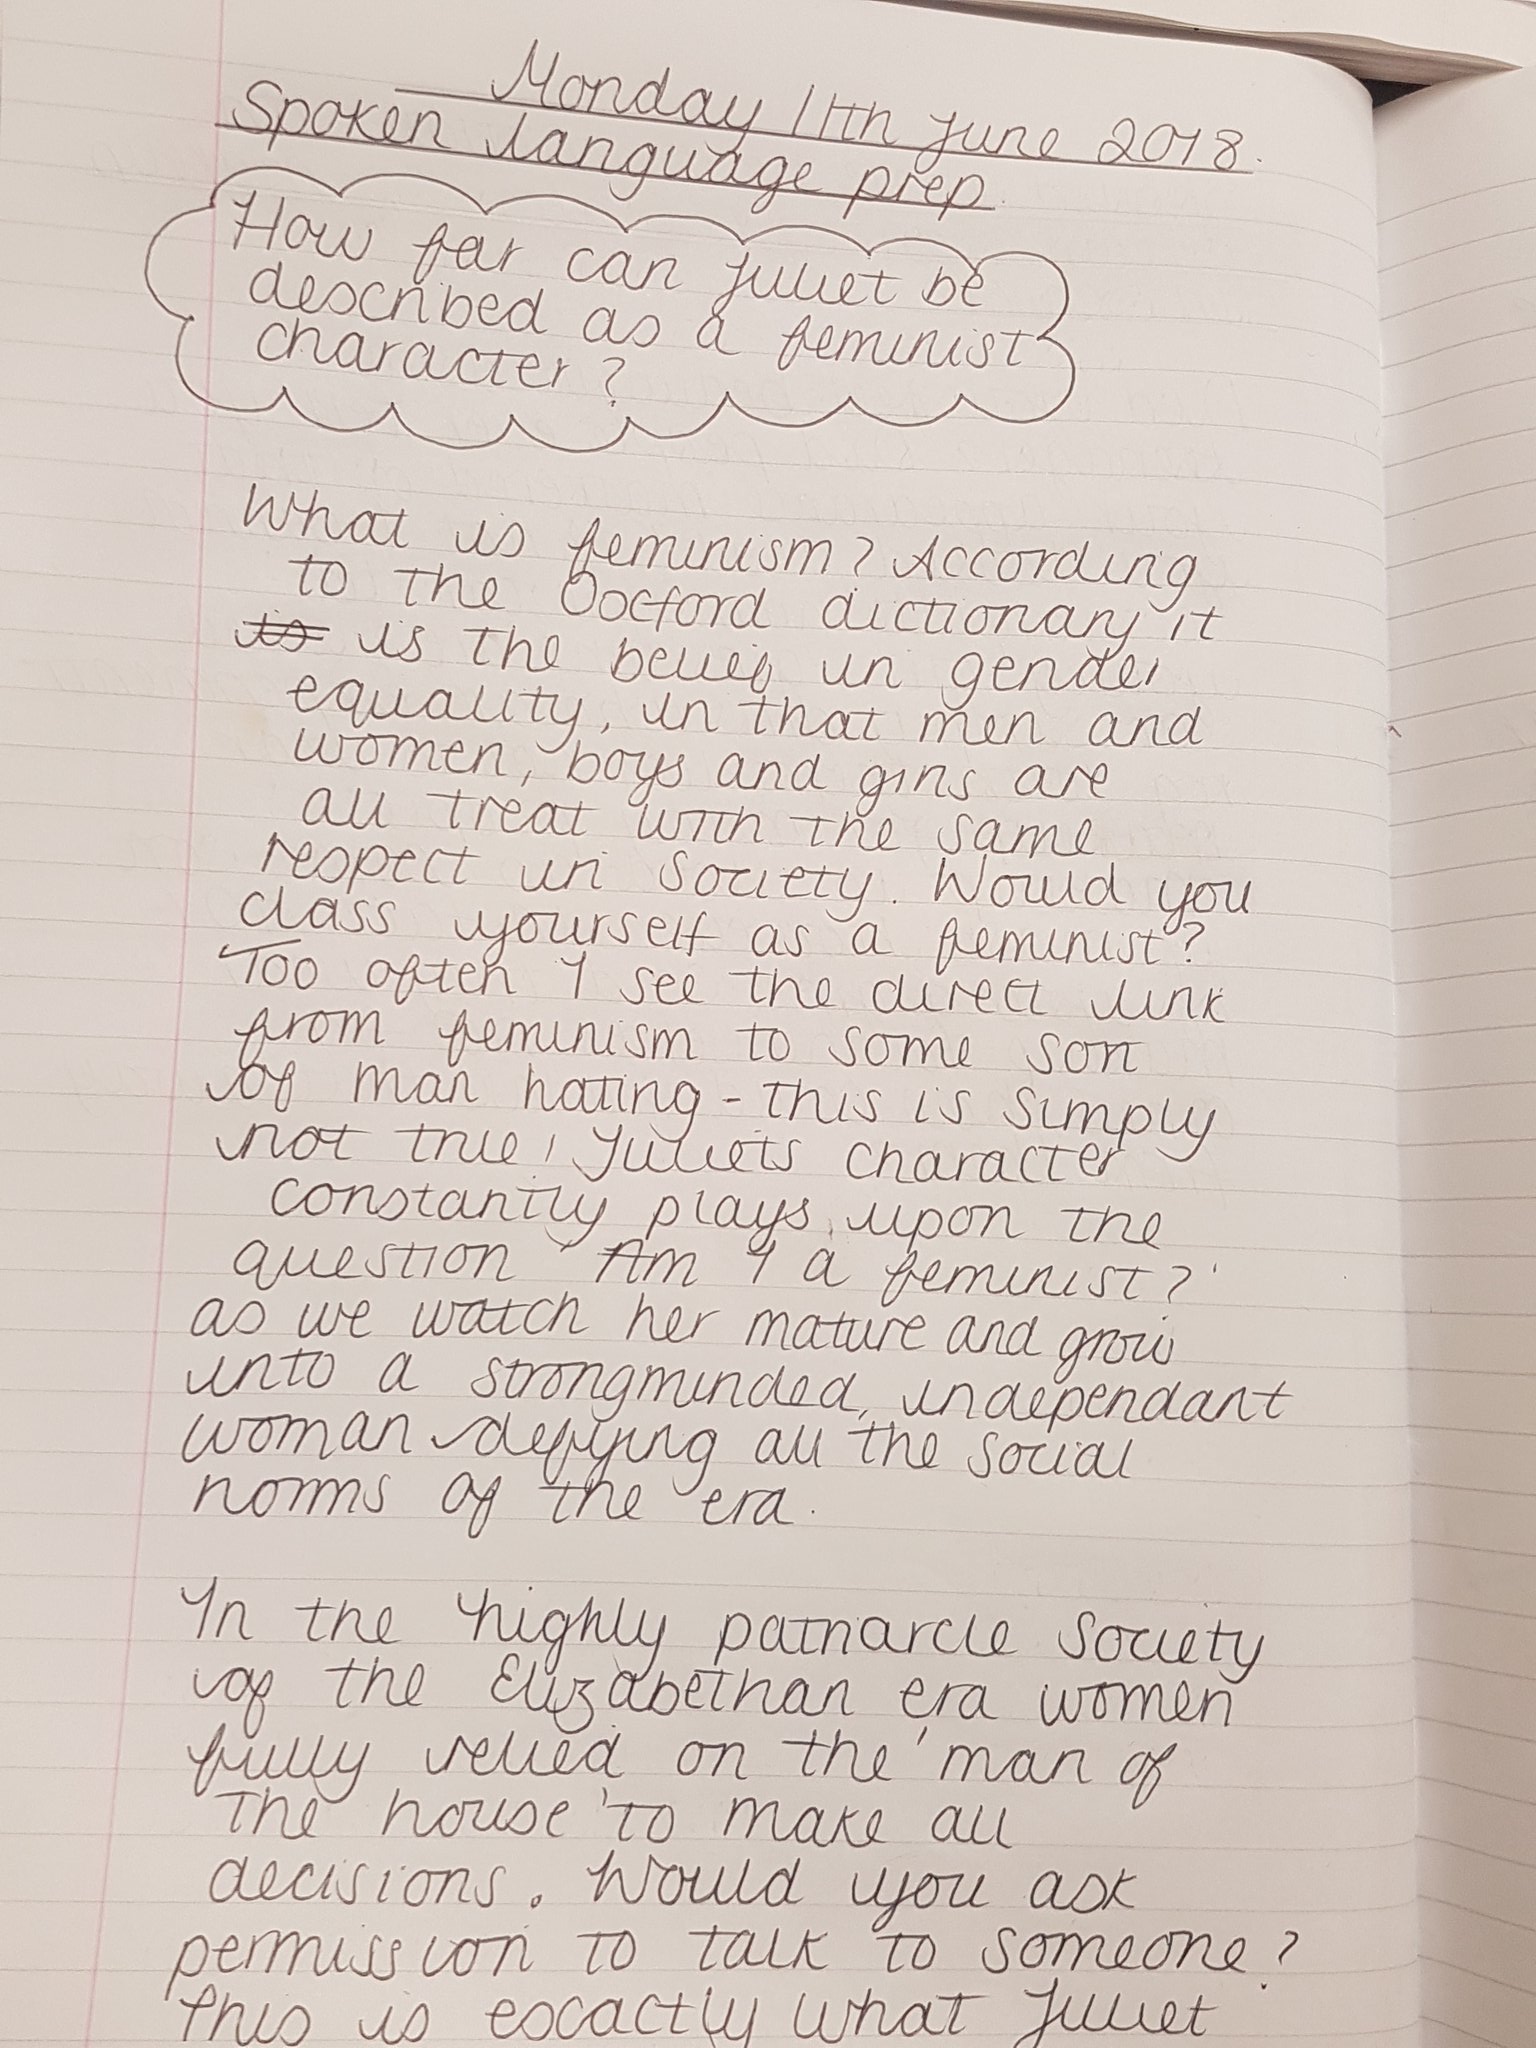 Monday 11th June 2018.
Spoken language prep.
How far can Juliet be
described as a feminist
character?
What is feminism? According
to the Oxford dictionary it
is is the belief in gender
equality, in that men and
women, boys and girls are
all treat with the same
respect in society. Would you
class yourself as a feminist?
Too often I see the direct link
from feminism to some sort
of man hating - this is simply
not true! Juliets character
constantly plays upon the
question 'Am I a feminist?'
as we watch her mature and grow
into a strongminded, independant
woman defying all the social
norms of the era.
In the highly patriarcle society
of the Elizabethan era women
fully relied on the 'man of
the house' to make all
decisions. Would you ask
permission to talk to someone?
This is excactly what Juliet